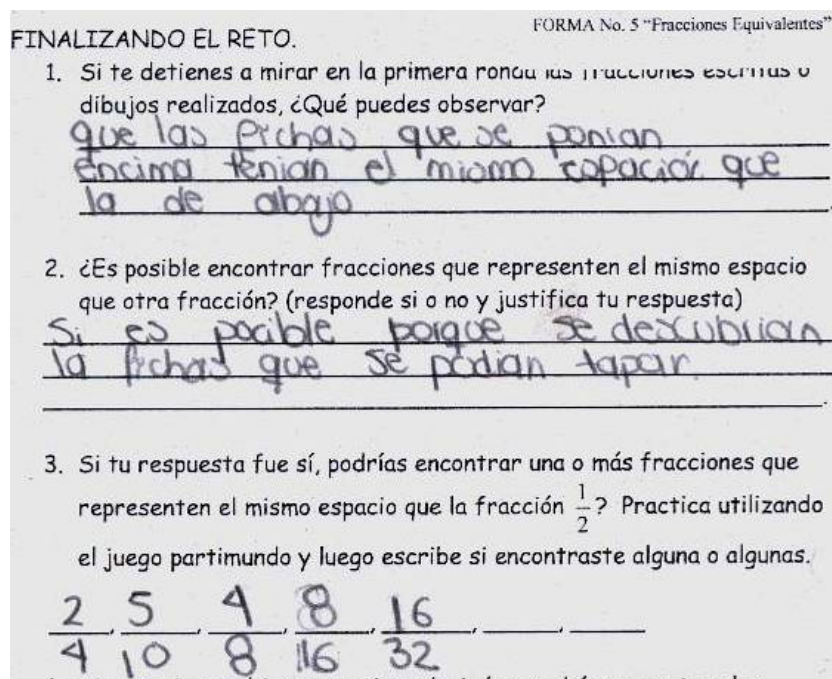 FORMA No. 5 “Fracciones Equivalentes”
FINALIZANDO EL RETO.
1. Si te detienes a mirar en la primera ronda las fracciones escritas o
dibujos realizados, ¿Qué puedes observar?
que las fichas que se ponian
encima tenian el mismo espacior que
la de abajo
2. ¿Es posible encontrar fracciones que representen el mismo espacio
que otra fracción? (responde si o no y justifica tu respuesta)
Si es pocible porque se descubrian
la fichas que se podian tapar.
3. Si tu respuesta fue sí, podrías encontrar una o más fracciones que
representen el mismo espacio que la fracción 1/2? Practica utilizando
el juego partimundo y luego escribe si encontraste alguna o algunas.
2/4, 5/10, 4/8, 8/16, 16/32, ____, ____